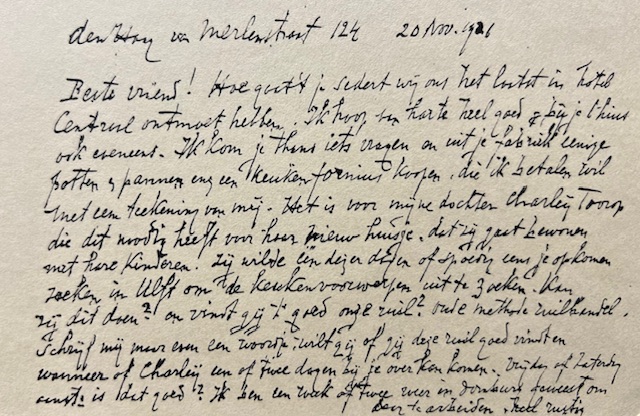 den Haag van Merlenstraat 124 20 Nov. 1921
Beste vriend! Hoe gaat 't je sedert wij ons het laatst in hotel
Centraal ontmoet hebben. Ik hoop van harte heel goed & bij je thuis
ook eveneens. Ik kom je thans iets vragen en uit je fabriek eenige
potten & pannen en een keukenfornuis koopen, die ik betalen wil
met een teekening van mij. Het is voor mijne dochter Charley Toorop
die dit noodig heeft voor haar nieuw huisje, dat zij gaat bewonen
met hare kinderen. Zij wilde een dezer dagen of spoedig eens je opkomen
zoeken in Ulft om de keukenvoorwerpen uit te zoeken. Kan
zij dit doen? en vindt gij 't goed onze ruil? oude methode ruilhandel.
Schrijf mij maar even een woordje; wilt gij of zij deze ruil goed vindt en
wanneer of Charley een of twee dagen bij je over kan komen. Vrijdag of Zaterdag
is dat goed? Ik ben een week of twee weer in Domburg geweest om
daar te arbeiden. Heel rustig